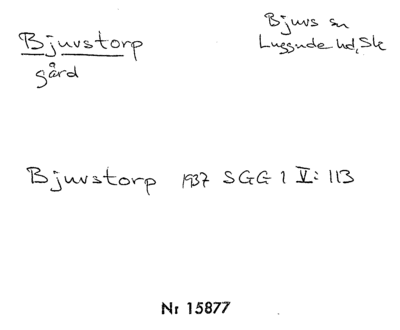 Bjuvstorp
gård
Bjuvs sn
Luggude hd, Sk
Bjuvstorp 1937 SGG 1 V: 113
Nr 15877